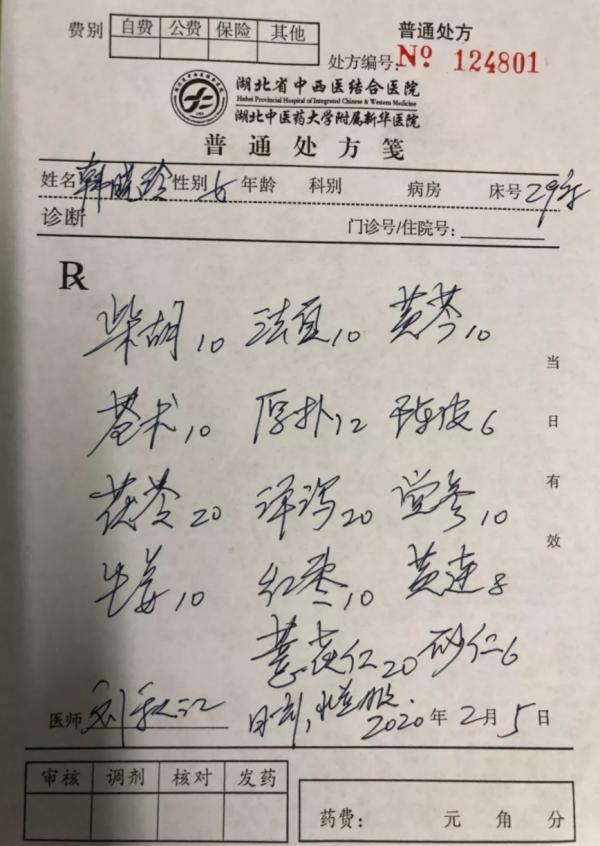 费别 自费 公费 保险 其他
普通处方
处方编号: Nº 124801
湖北省中西医结合医院
Hubei Provincial Hospital of Integrated Chinese & Western Medicine
湖北中医药大学附属新华医院
普通处方笺
姓名 韩晓玲 性别 女 年龄 科别 病房 床号 29岁
诊断 门诊号/住院号:
R
柴胡10 法夏10 黄芩10
苍术10 厚朴12 陈皮6
茯苓20 泽泻20 党参10
生姜10 红枣10 黄连8
薏苡仁20 砂仁6
当日有效
医师 刘 日一剂, 2020年2月5日
审核 调剂 核对 发药
药费: 元 角 分